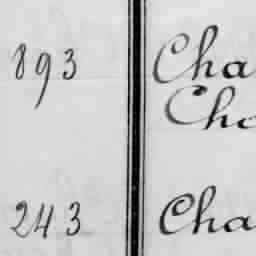 893 Cha
Cha
243 Cha